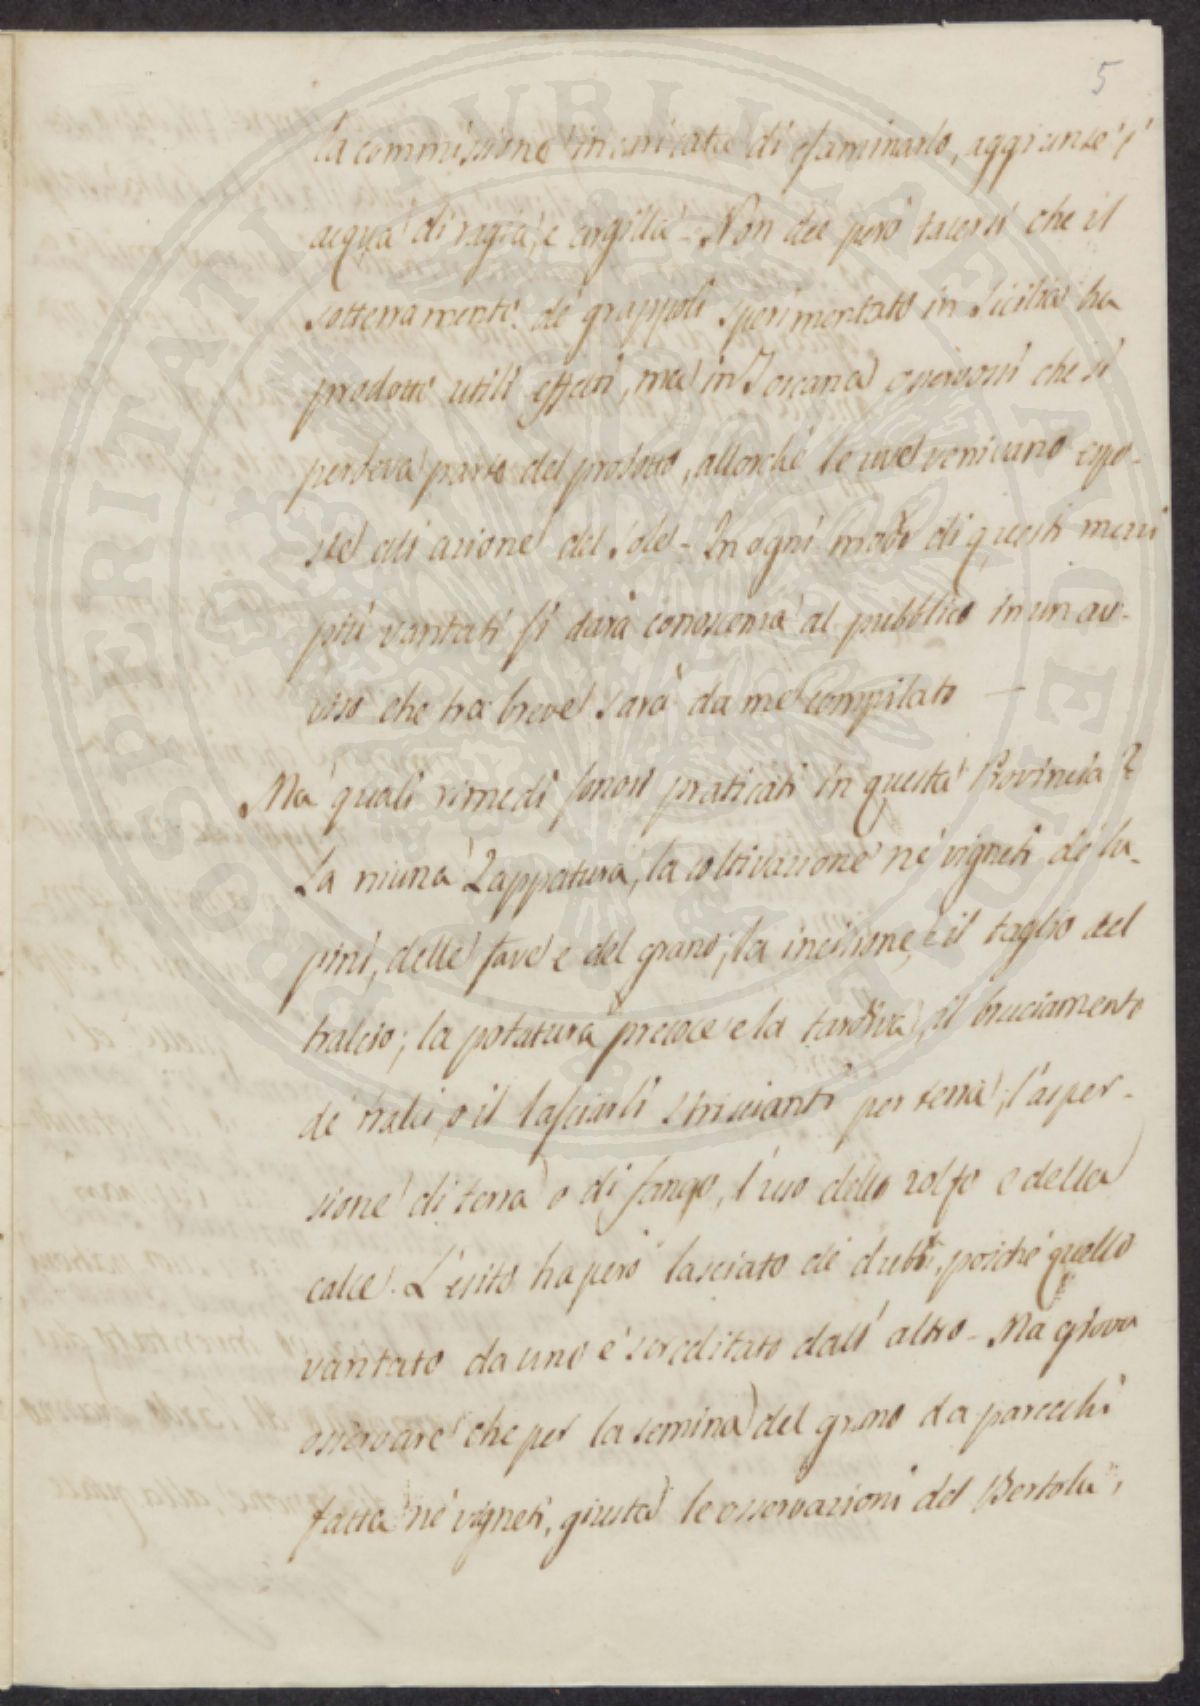 5
la commissione incaricata di esaminarlo, aggiunse l'
acqua di ragia, e argilla - Non dee però tacersi che il
sotterramento de' grappoli sperimentato in Sicilia ha
prodotti utili effetti, ma in Toscana osservossi che si
perdeva parte del prodotto, allorché le uve venivano espo-
ste all'azione del sole - In ogni modo di questi mezzi
più vantati si darà conoscenza al pubblico in un av-
viso che tra breve sarà da me compilato —
Ma quali rimedi sonosi praticati in questa Provincia?
La niuna zappatura, la coltivazione ne' vigneti de' lu-
pini, delle fave e del grano; la incisione, e il taglio del
tralcio; la potatura precoce e la tardiva, il bruciamento
de' tralci, o il lasciarli striscianti per terra; l'asper-
sione di terra o di fango, l'uso dello zolfo e della
calce. L'esito ha però lasciato de' dubbi, poiché quello
vantato da uno è screditato dall'altro - Ma giova
osservare che per la semina del grano da parecchi
fatta ne' vigneti, giusta le osservazioni del Bertola,
PROSPERITATI PUBLICAE AUGENDAE